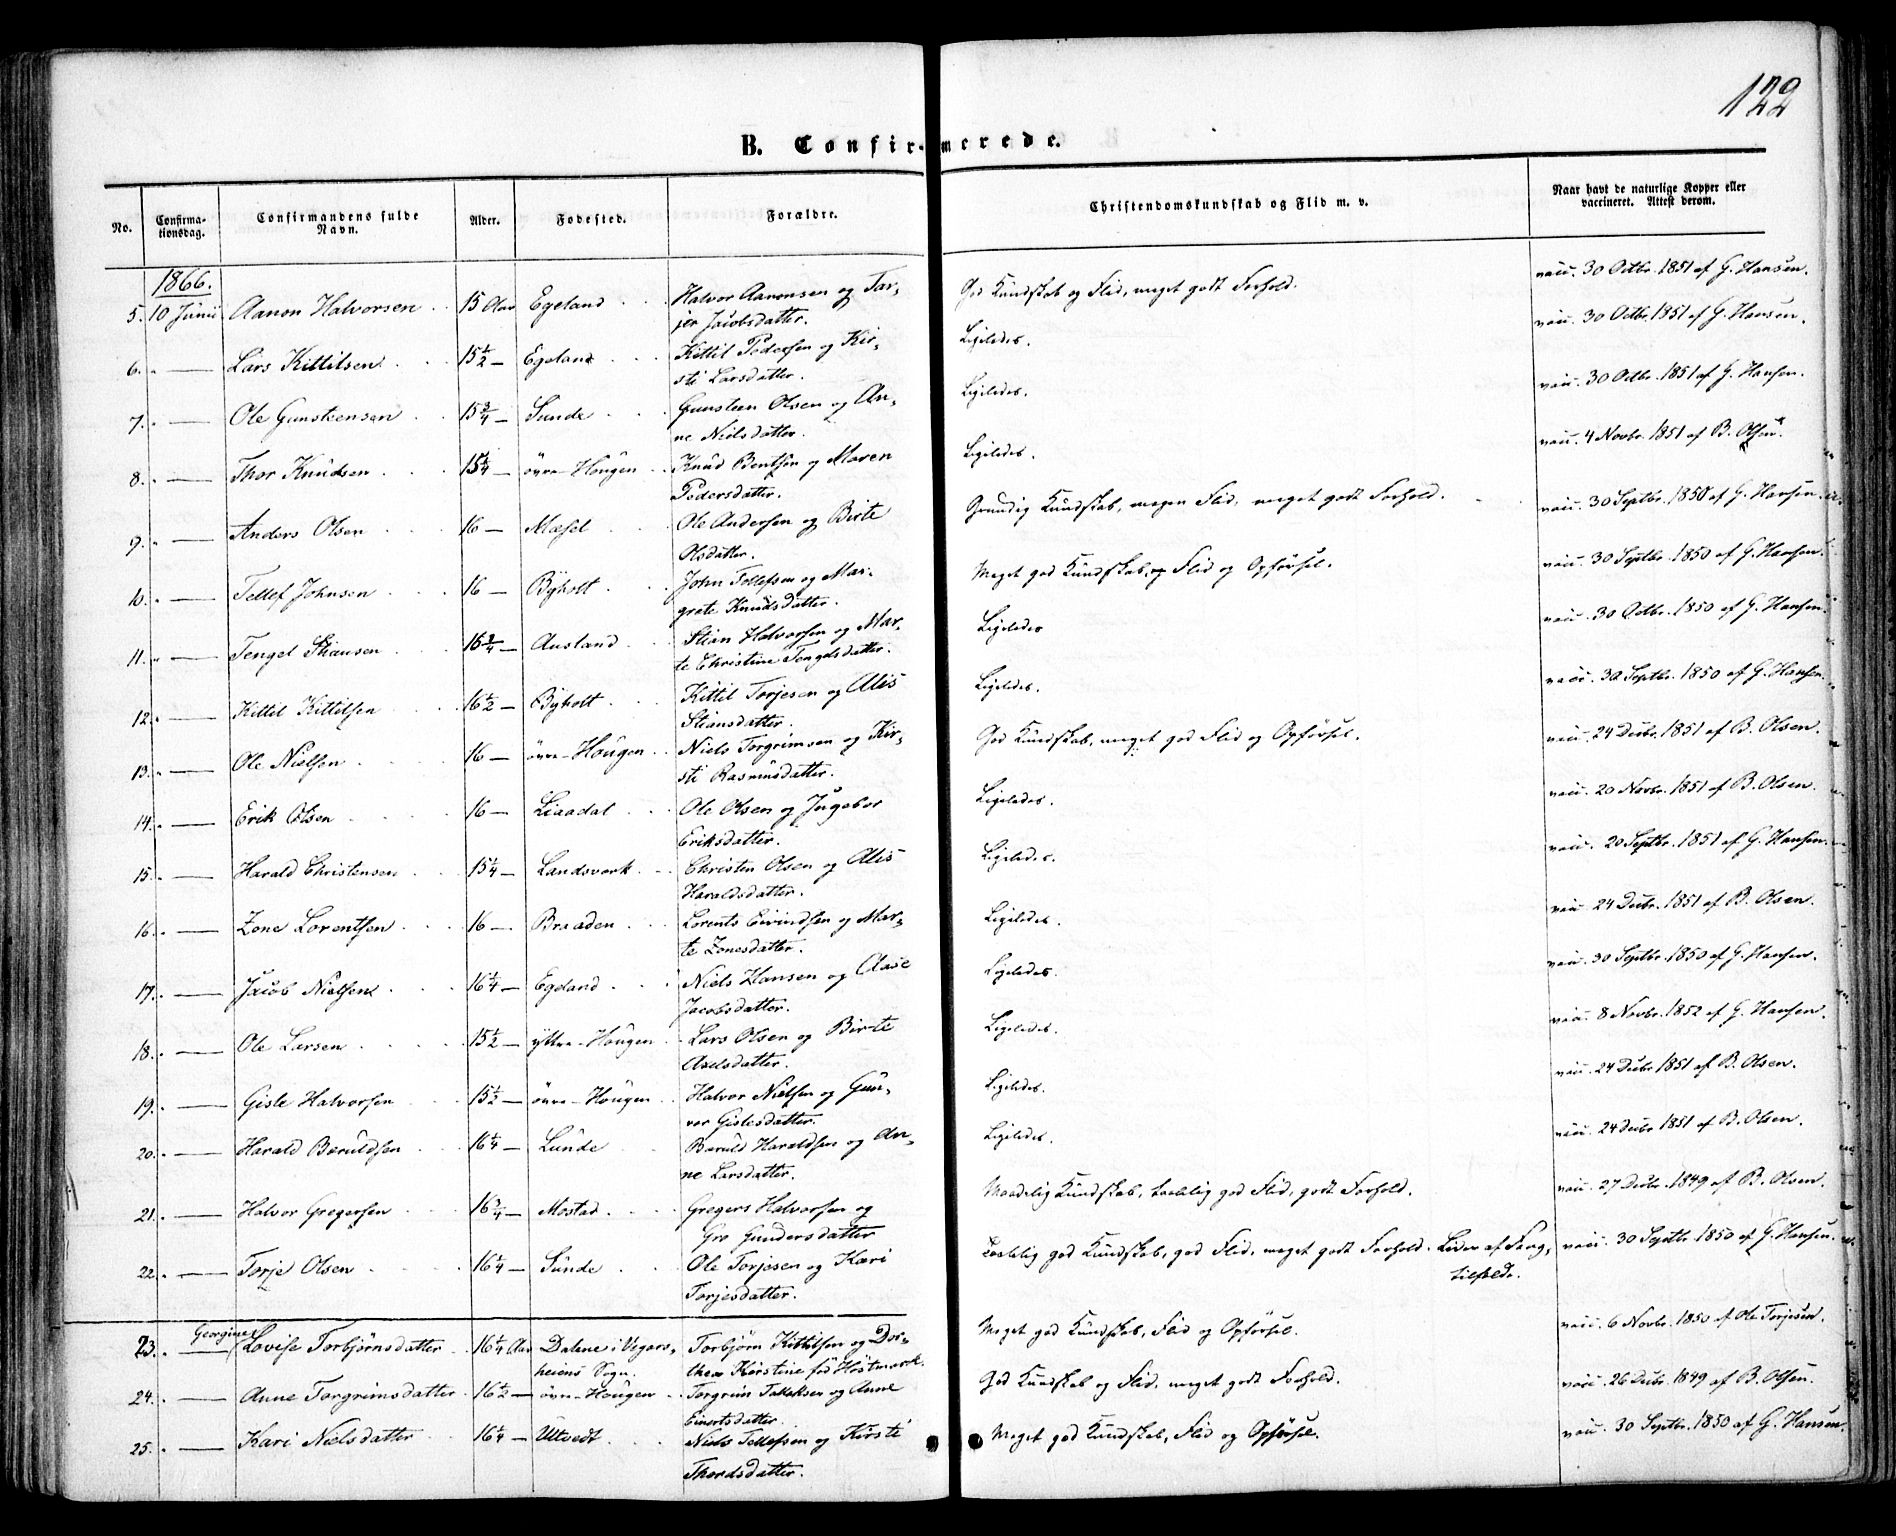 122
B. Confirmerede.
No. Confirmationsdag. Confirmandens fulde Navn. Alder. Fødested. Forældre. Christendomskundskab og Flid m. v. Naar havt de naturlige Kopper eller vaccineret. Attest derom.
1866.
5. 10 Juni Aanon Halvorsen 15 Aar Egeland Halvor Aanonsen og Tarjer Jacobsdatter. God Kundskab og Flid, meget godt Forhold. vacc. 30 Octbr. 1851 af G. Hansen.
6. " — Lars Kittilsen 15½ — Egeland Kittil Pedersen og Kirsti Larsdatter. Ligeledes. vacc. 30 Octbr. 1851 af G. Hansen.
7. " — Ole Gunsteensen 15¾ — Sunde Gunsteen Olsen og Anne Nielsdatter. Ligeledes. vacc. 30 Octbr. 1851 af G. Hansen.
8. " — Thor Knudsen 15¼ — övre-Hougen Knud Bentsen og Maren Pedersdatter. Ligeledes. vacc. 4 Novbr. 1851 af B. Olsen.
9. " — Anders Olsen 16 — Mæsel Ole Andersen og Birte Olsdatter. Grundig Kundskab, megen Flid, meget godt Forhold. vacc. 30 Septbr. 1850 af G. Hansen.
10. " — Tellef Johnsen 16 — Byholt John Tellefsen og Margrete Knudsdatter. Meget god Kundskab, Flid og Opförsel. vacc. 30 Septbr. 1850 af G. Hansen.
11. " — Tengel Stiansen 16¾ — Ausland Stian Halvorsen og Marte Christine Tengelsdatter. Ligeledes vacc. 30 Octbr. 1850 af G. Hansen.
12. " — Kittil Kittilsen 16½ — Byholt Kittil Torjesen og Alis Stiansdatter. Ligeledes. vacc. 30 Septbr. 1850 af G. Hansen.
13. " — Ole Nielsen 16 — övre-Hougen Niels Torgrimsen og Kirsti Rasmusdatter. God Kundskab, meget god Flid og Opförsel. vacc. 24 Decbr. 1851 af B. Olsen.
14. " — Erik Olsen 16 — Liaadal Ole Olsen og Ingebor Eriksdatter. Ligeledes. vacc. 20 Novbr. 1851 af B. Olsen.
15. " — Harald Christensen 15¼ — Landsverk Christen Olsen og Alis Haraldsdatter. Ligeledes. vacc. 20 Septbr. 1851 af G. Hansen.
16. " — Zone Lorentsen 16 — Braaden Lorents Eivindsen og Marte Zonesdatter. Ligeledes. vacc. 24 Decbr. 1851 af B. Olsen.
17. " — Jacob Nielsen 16¼ — Egeland Niels Hansen og Aase Jacobsdatter. Ligeledes. vacc. 30 Septbr. 1850 af G. Hansen.
18. " — Ole Larsen 15½ — yttre-Hougen Lars Olsen og Birte Axelsdatter. Ligeledes. vacc. 8 Novbr. 1852 af G. Hansen.
19. " — Gisle Halvorsen 15½ — övre-Hougen Halvor Nielsen og Gunvor Gislesdatter. Ligeledes. vacc. 24 Decbr. 1851 af B. Olsen.
20. " — Harald Beruldsen 16¼ — Lunde Beruld Haraldsen og Anne Larsdatter. Ligeledes. vacc. 24 Decbr. 1851 af B. Olsen.
21. " — Halvor Gregersen 16¾ — Mostad Gregers Halvorsen og Gro Gundersdatter Maadelig Kundskab, taalelig god Flid, godt Forhold. vacc. 27 Decbr. 1849 af B. Olsen.
22. " — Torje Olsen 16¼ — Sunde Ole Torjesen og Kari Torjesdatter. Taalelig god Kundskab, god Flid, meget godt Forhold. Lider af vacc. 30 Septbr. 1850 af G. Hansen.
23. " — Georgine Lovise Torbjörnsdatter 16¼ Aar Dalene i Vegarsheiens Sogn. Torbjörn Kittilsen og Dorthea Kirstine föd Höstmark. Meget god Kundskab, Flid og Opförsel. vacc. 6 Novbr. 1850 af Ole Torjesen.
24. " — Anne Torgrimsdatter 16½ — övre-Hougen Torgrim Tallaksen og Anne Einertsdatter God Kundskab og Flid, meget godt Forhold. vacc. 26 Decbr. 1849 af B. Olsen.
25. " — Kari Nielsdatter 16¼ — Utvedt Niels Tellefsen og Kirsti Thordsdatter. Meget god Kundskab, Flid og Opförsel. vacc. 30 Septbr. 1850 af G. Hansen.